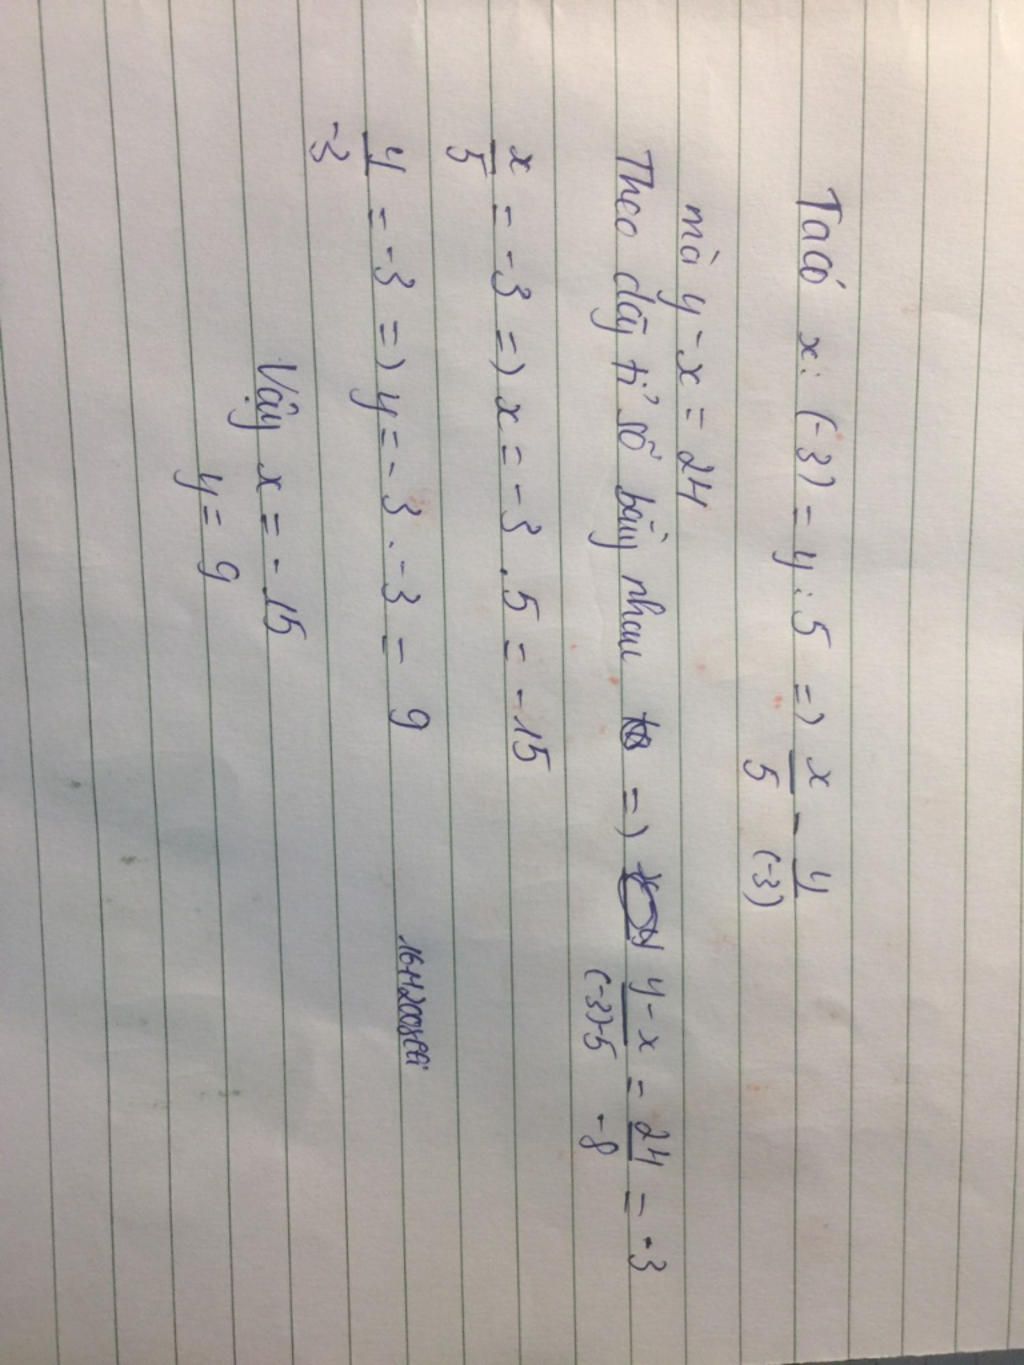 Ta có x : (-3) = y : 5 => x/5 = y/(-3)
mà y - x = 24
Theo dãy tỉ số bằng nhau => y - x/(-3)-5 = 24/-8 = -3
x/5 = -3 => x = -3 . 5 = -15
y/-3 = -3 => y = -3 . -3 = 9
Vậy x = -15
y = 9